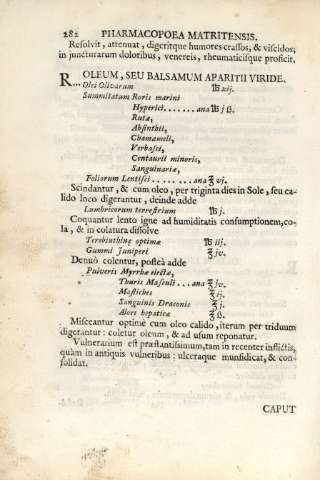 282 PHARMACOPOEA MATRITENSIS.
Resolvit, attenuat, digeritque humores crassos, & viscidos;
in juncturarum doloribus, venereis, rheumaticisque proficit.
OLEUM, SEU BALSAMUM APARITII VIRIDE.
R... Olei Olivarum ℔ xij.
Summitatum Roris marini
Hyperici ........ ana ℔ j ß.
Rutæ,
Absinthii,
Chamæmeli,
Verbasci,
Centaurii minoris,
Sanguinariæ,
Foliorum Lentisci ........ ana ℥ vj.
Scindantur, & cum oleo, per triginta dies in Sole, seu ca-
lido loco digerantur, deinde adde
Lumbricorum terrestrium ℔ j.
Coquantur lento igne ad humiditatis consumptionem, co-
la, & in colatura dissolve
Terebinthinæ optimæ ℔ iij.
Gummi Juniperi ℥ jv.
Denuò colentur, posteà adde
Pulveris Myrrhæ electæ,
Thuris Masculi ... ana ℥ jv.
Mastiches ℥ ij.
Sanguinis Draconis ℥ j.
Aloes hepaticæ ℥ ß.
Misceantur optimè cum oleo calido, iterum per triduum
digerantur: coletur oleum, & ad usum reponatur.
Vulnerarium est præstantissimum, tam in recenter inflictis,
quàm in antiquis vulneribus: ulceraque mundificat, & con-
solidat.
CAPUT